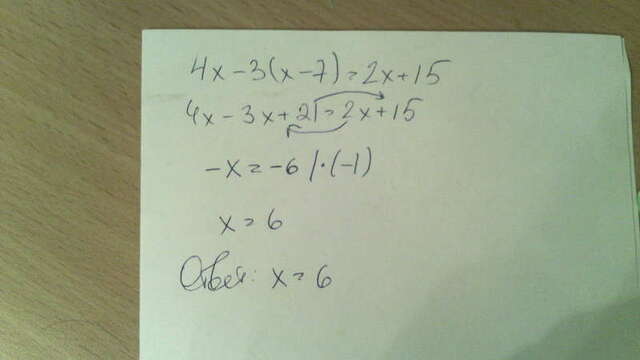 4x-3(x-7)=2x+15
4x-3x+21=2x+15
-x=-6 |·(-1)
x=6
Ответ: x=6